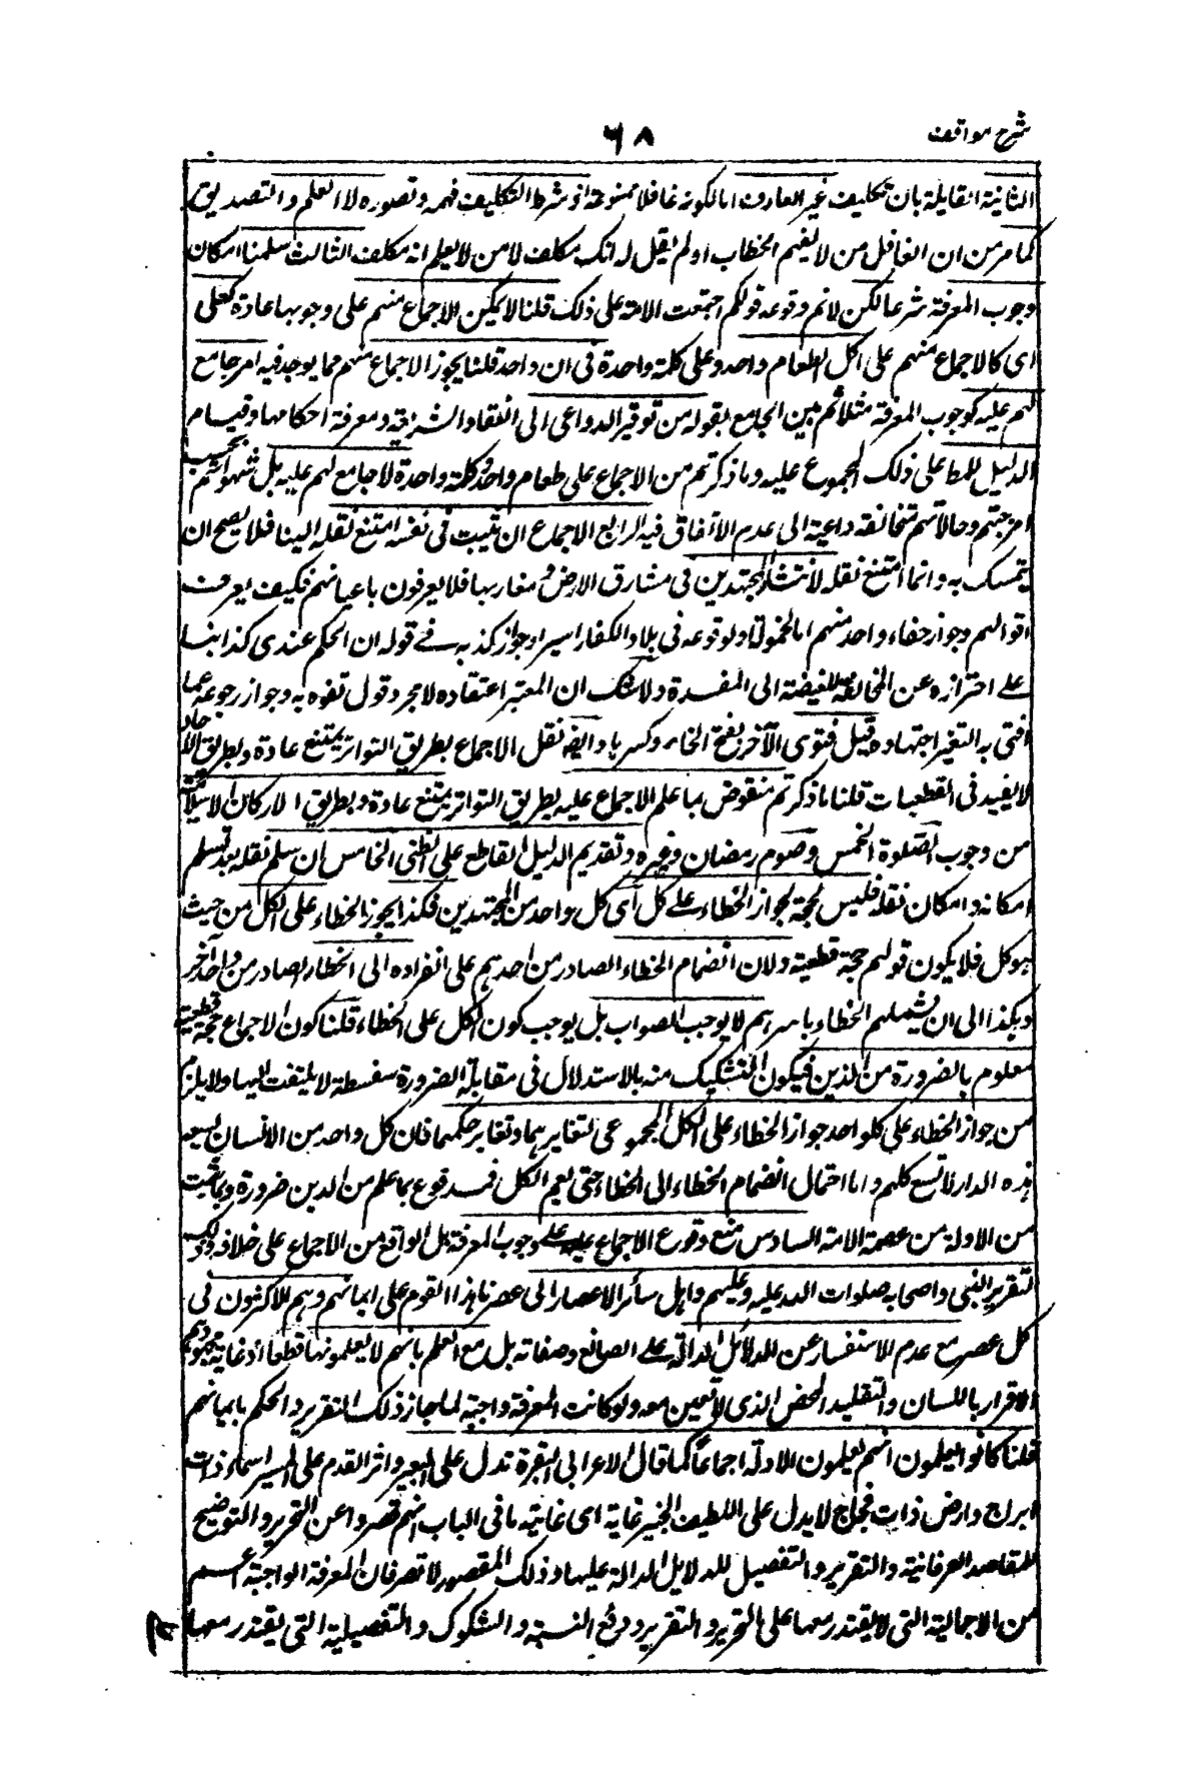 شرح مواقف
٦٨
الثانية القايلة بان تكليف غير العارف اما لكونه غافلا ممنوعة اذ شرط التكليف فهمه وتصوره لا العلم والتصديق
كما مر من ان الغافل من لا يفهم الخطاب او لم يقل له انك مكلف لا من لا يعلم انه مكلف الثالث سلمنا امكان
وجوب المعرفة شرعا لكن لا نم وقوعه قولكم اجتمعت الامة على ذلك قلنا لا يمكن الاجماع منهم على وجوبها عادة كعلى
اى كالاجماع منهم على اكل طعام واحد وعلى كلمة واحدة فى ان واحد قلنا يجوز الاجماع منهم مما يوجد فيه امر جامع
لهم عليه كوجوب المعرفة مثلا ثم بين الجامع بقوله من توفير الدواعى الى انقياد الشريعة ومعرفة احكامها وقيام
الدليل للمط على ذلك المجموع عليه وما ذكرتم من الاجماع على طعام واحد وكلمة واحدة لا جامع لهم عليه بل شهواتهم بحسب
امزجتهم وحالاتهم متخالفة داعية الى عدم الاتفاق فيه الرابع الاجماع ان ثبت فى نفسه امتنع نقله الينا فلا يصح ان
يتمسك به وانما امتنع نقله لانتشار المجتهدين فى مشارق الارض و مغاربها فلا يعرفون باعيانهم فكيف يعرف
اقوالهم وجواز خفاء واحد منهم اما لخموله او لوقوعه فى بلاد الكفار اسيرا وجواز كذبه فے قوله ان الحكم عندى كذا بناء
على احترازه عن المخالفة المفضية الى المفسدة ولا شك ان المعتبر اعتقاده لا مجرد قول تفوه به وجواز رجوعه عما
افتى به لتغير اجتهاده قبل فتوى الآخر بفتح الخاء وكسرها وايضا نقل الاجماع بطريق التواتر يمتنع عادة وبطريق الآحاد
لا يفيد فى القطعيات قلنا ما ذكرتم منقوض بما علم الاجماع عليه بطريق التواتر يمتنع عادة وبطريق الاركان الاسلامية
من وجوب الصلوة الخمس وصوم رمضان وغيره وتقديم الدليل القاطع على الظنى الخامس ان سلم نقله بعد تسليم
امكانه وامكان نقله فليس بحجة لجواز الخطاء على كل اى كل واحد من المجتهدين فكذا يجوز الخطاء على الكل من حيث
هو كل فلا يكون قولهم حجة قطعية ولان انضمام الخطاء الصادر من احدهم على انفراده الى الخطاء الصادر من واحد آخر
وهكذا الى ان يشملهم الخطاء باسرهم لا يوجب الصواب بل يوجب كون الكل على الخطاء قلنا كون الاجماع حجة قطعية
معلوم بالضرورة من الدين فيكون التشكيك منه بالاستدلال فى مقابلة الضرورة سفسطة لا يلتفت اليها ولا يلزم
من جواز الخطاء على كلواحد جواز الخطاء على الكل المجموعى لتغايرهما وتغاير حكمهما فان كل واحد من الانسان يسعه
هذه الدار لا تسع كلهم واما احتمال انضمام الخطاء الى الخطاء حتى يعم الكل فمدفوع بما علم من الدين ضرورة وبما ثبت
من الادلة من عصمة الامة السادس منع وقوع الاجماع على وجوب المعرفة بل الواقع من الاجماع على خلافه وذلك
لتقرير النبى واصحابه صلوات الله عليه وعليهم واهل سائر الاعصار الى عصرنا هذا القوم على ايمانهم وهم الاكثرون فى
كل عصر مع عدم الاستفسار عن الدلائل الدالة على الصانع وصفاته بل مع العلم بانهم لا يعلمونها قطعا اذ غاية مجهودهم
الاقرار باللسان والتقليد المحض الذى لا يقين معه ولو كانت المعرفة واجبة لما جاز ذلك التقرير والحكم بايمانهم
قلنا كانوا يعلمون انهم يعلمون الادلة اجماعا كما قال الاعرابى البعرة تدل على البعير واثر القدم على المسير اسماء ذات
ابراج وارض ذات فجاج لا يدل على اللطيف الخبير غاية اى غاية ما فى الباب انهم قصروا عن التحرير والتوضيح
للمقاصد العرفانية والتقرير والتفصيل للدلايل الدالة عليها وذلك المقصور لا تضر فان المعرفة الواجبة اعم
من الاجمالية التى لا يقتدر معها على التحرير والتقرير ودفع الشبه والشكوك والتفصيلية التى يقتدر معها